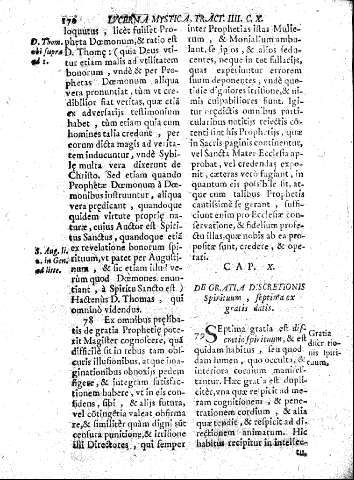 170 LUCERNA MYSTICA, TRACT. IIII. C. X.
loquutus, licèt fuisset Pro-
pheta Dœmonum, & ratio est
D. Thomę: (quia Deus vti-
tur etiam malis ad vtilitatem
bonorum, vndè & per Pro-
phetas Dœmonum aliqua
vera pronuntiat, tùm vt cre-
dibilior fiat veritas, quæ etiā
ex adversarijs testimonium
habet, tùm etiam quia cum
homines talia credunt, per
eorum dicta magis ad verita-
tem inducuntur, vndè Sybi-
lę multa vera dixerunt de
Christo. Sed etiam quando
Prophetæ Dœmonum à Dœ-
monibus instruuntur, aliqua
vera prędicant, quandoque
quidem virtute proprię na-
turæ, cuius Auctor est Spiri-
tus Sanctus, quandoque etiā
ex revelatione bonorum spi-
rituum, vt patet per Augusti-
num, & sic etiam illud ve-
rum quod Dœmones enun-
tiant, à Spiritu Sancto est)
Hactenus D. Thomas, qui
omninò videndus.
78 Ex omnibus prędiba-
tis de gratia Prophetię pote-
rit Magister cognoscere, quā
difficilè sit in rebus tam obs-
curis illusionibus, atque ima-
ginationibus obnoxijs pedem
figere, & integram satisfac-
tionem habere, vt in eis con-
fidens, sibi, & alijs futura,
vel cōtingētia valeat obfirma-
re, & similitèr quàm digni sūt
censura punitione, & irrisione
illi Directores, qui semper
D. Thom.
vbi supra
ad 1.
S. Aug. li.
2. in Gen.
ad litte.
inter Prophetias istas Mulie-
rum, & Monialium ambu-
lant, se ipsos, & alios sedu-
centes, neque in tot fallacijs,
quas experiuntur errorem
suum deponentes, vndè quo-
tidiè digniores irrisione, & ni-
mis culpabiliores sunt. Igi-
tur prędictis omnibus parti-
cularibus notitijs reiectis cō-
tenti sint his Prophetijs, quæ
in Sacris paginis continentur,
vel Sancta Mater Ecclesia ap-
probat, vel credendas expo-
nit, cæteras verò fugiant, in
quantum eis possibile sit, at-
que cum talibus Prophetis
cautissimè se gerant, suffi-
ciunt enim pro Ecclesiæ conse-
rvatione, & fidelium profec-
tu illa, quæ nobis ab ea pro-
posite sunt, credere, & ope-
rati.
CAP. X.
DE GRATIA DISCRETIONIS
Spirituum, septima ex
gratis datis.
79 Septima gratia est dis-
cretio spirituum, & est
quidam habitus, seu quod-
dam lumen, quo occulta, &
interiora cordium manifes-
tantur. Hæc gratia est dupli-
citèr, vna quæ respicit ad me-
ram cognitionem, & pene-
trationem cordium, & alia
quæ tendit, & respicit ad di-
rectionem animarum. Hic
habitus recipitur in intellec-
tu,
Gratia
discr tio
nis spiri-
tuum,